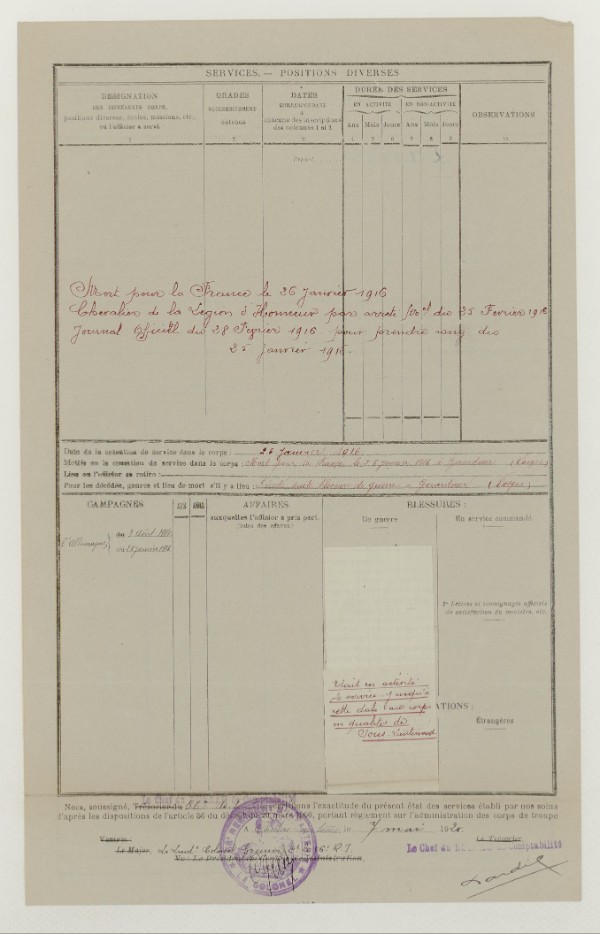 SERVICES. — POSITIONS DIVERSES
DÉSIGNATION
DES DIFFÉRENTS CORPS,
positions diverses, écoles, missions, etc.,
où l'officier a servi
GRADES
SUCCESSIVEMENT
obtenus
DATES
CORRESPONDANT
à
chacune des inscriptions
des colonnes 1 et 2
DURÉE DES SERVICES
EN ACTIVITÉ
EN NON-ACTIVITÉ
Ans Mois Jours Ans Mois Jours
OBSERVATIONS
Report
Mort pour la France le 26 Janvier 1916
Chevalier de la Légion d'Honneur par arrêté du 25 Février 1916
Journal Officiel du 28 Février 1916 pour prendre rang du
25 Janvier 1916.
Date de la cessation de service dans le corps : 26 Janvier 1916.
Motifs de la cessation de service dans le corps : Mort pour la France le 26 janvier 1916 à Gérardmer (Vosges)
Lieu où l'officier se retire :
Pour les décédés, genres et lieu de mort s'il y a lieu : blessures de guerre à Gérardmer (Vosges)
CAMPAGNES
AFFAIRES
auxquelles l'officier a pris part.
(Dates des affaires.)
BLESSURES :
De guerre
En service commandé
d'Allemagne
du 2 Août 1914
au 26 janvier 1916
2° Lettres et témoignages officiels
de satisfaction du ministre, etc.
Était en activité
de service jusqu'à
cette date au corps
en qualité de
Sous-Lieutenant
ATIONS :
Étrangères
Nous, soussigné, Trésorier du certifions l'exactitude du présent état des services établi par nos soins
d'après les dispositions de l'article 36 du décret portant règlement sur l'administration des corps de troupe
A le 7 mai 1920.
Le Trésorier
Le Major, Le Lieut. Colonel
Vu : Le Président du Conseil d'administration,
LE COLONEL
Le Chef du Bureau de Comptabilité